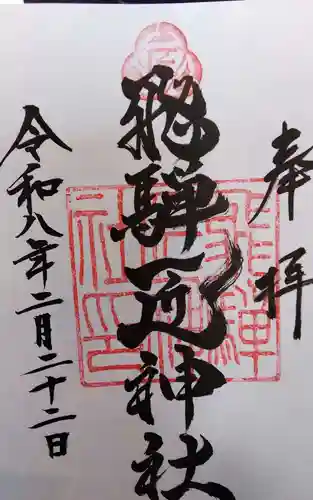 奉拝
飛騨匠神社
飛騨
匠神
社印
令和八年二月二十二日